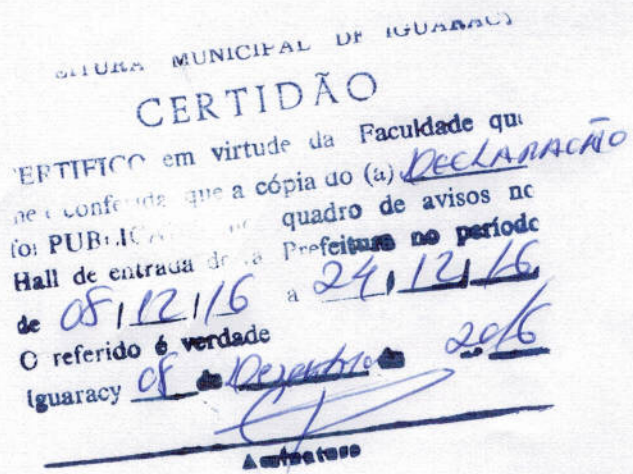 EITURA MUNICIPAL DE IGUARACY
CERTIDÃO
CERTIFICO em virtude da Faculdade que
me é conferida que a cópia do (a) DECLARAÇÃO
foi PUBLICA quadro de avisos no
Hall de entrada desta Prefeitura no período
de 08/12/16 a 24/12/16
O referido é verdade
Iguaracy 08 de Dezembro de 2016
Assinatura